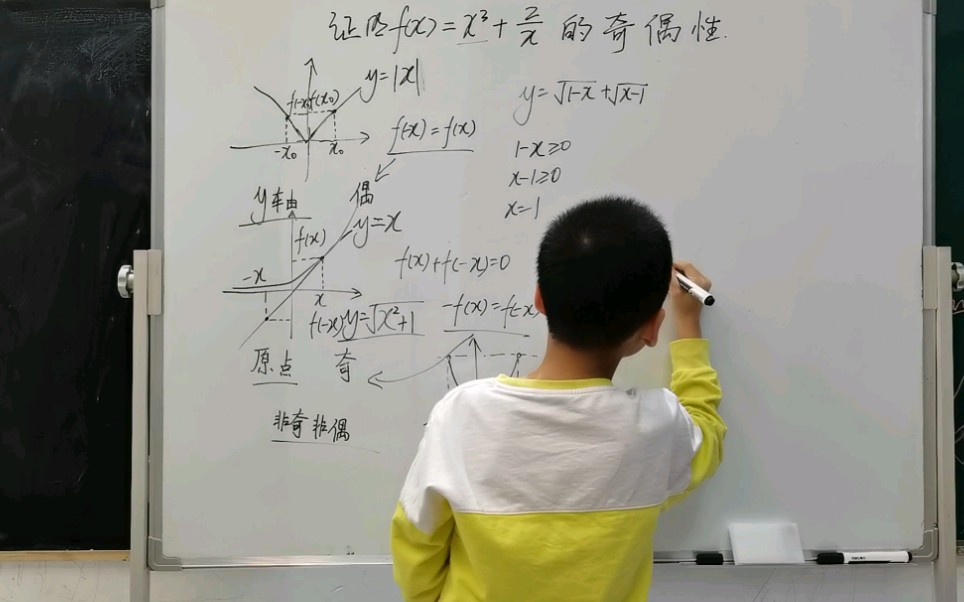 证明f(x)=x³+2/x 的奇偶性.
y=|x|
f(-x) f(x₀)
-x₀ x₀
f(-x)=f(x)
y=√1-x+√x-1
1-x≥0
x-1≥0
x=1
y轴
偶
y=x
f(x)
-x
x
f(x)+f(-x)=0
f(-x)
y=√x²+1
-f(x)=f(-x
原点 奇
非奇非偶